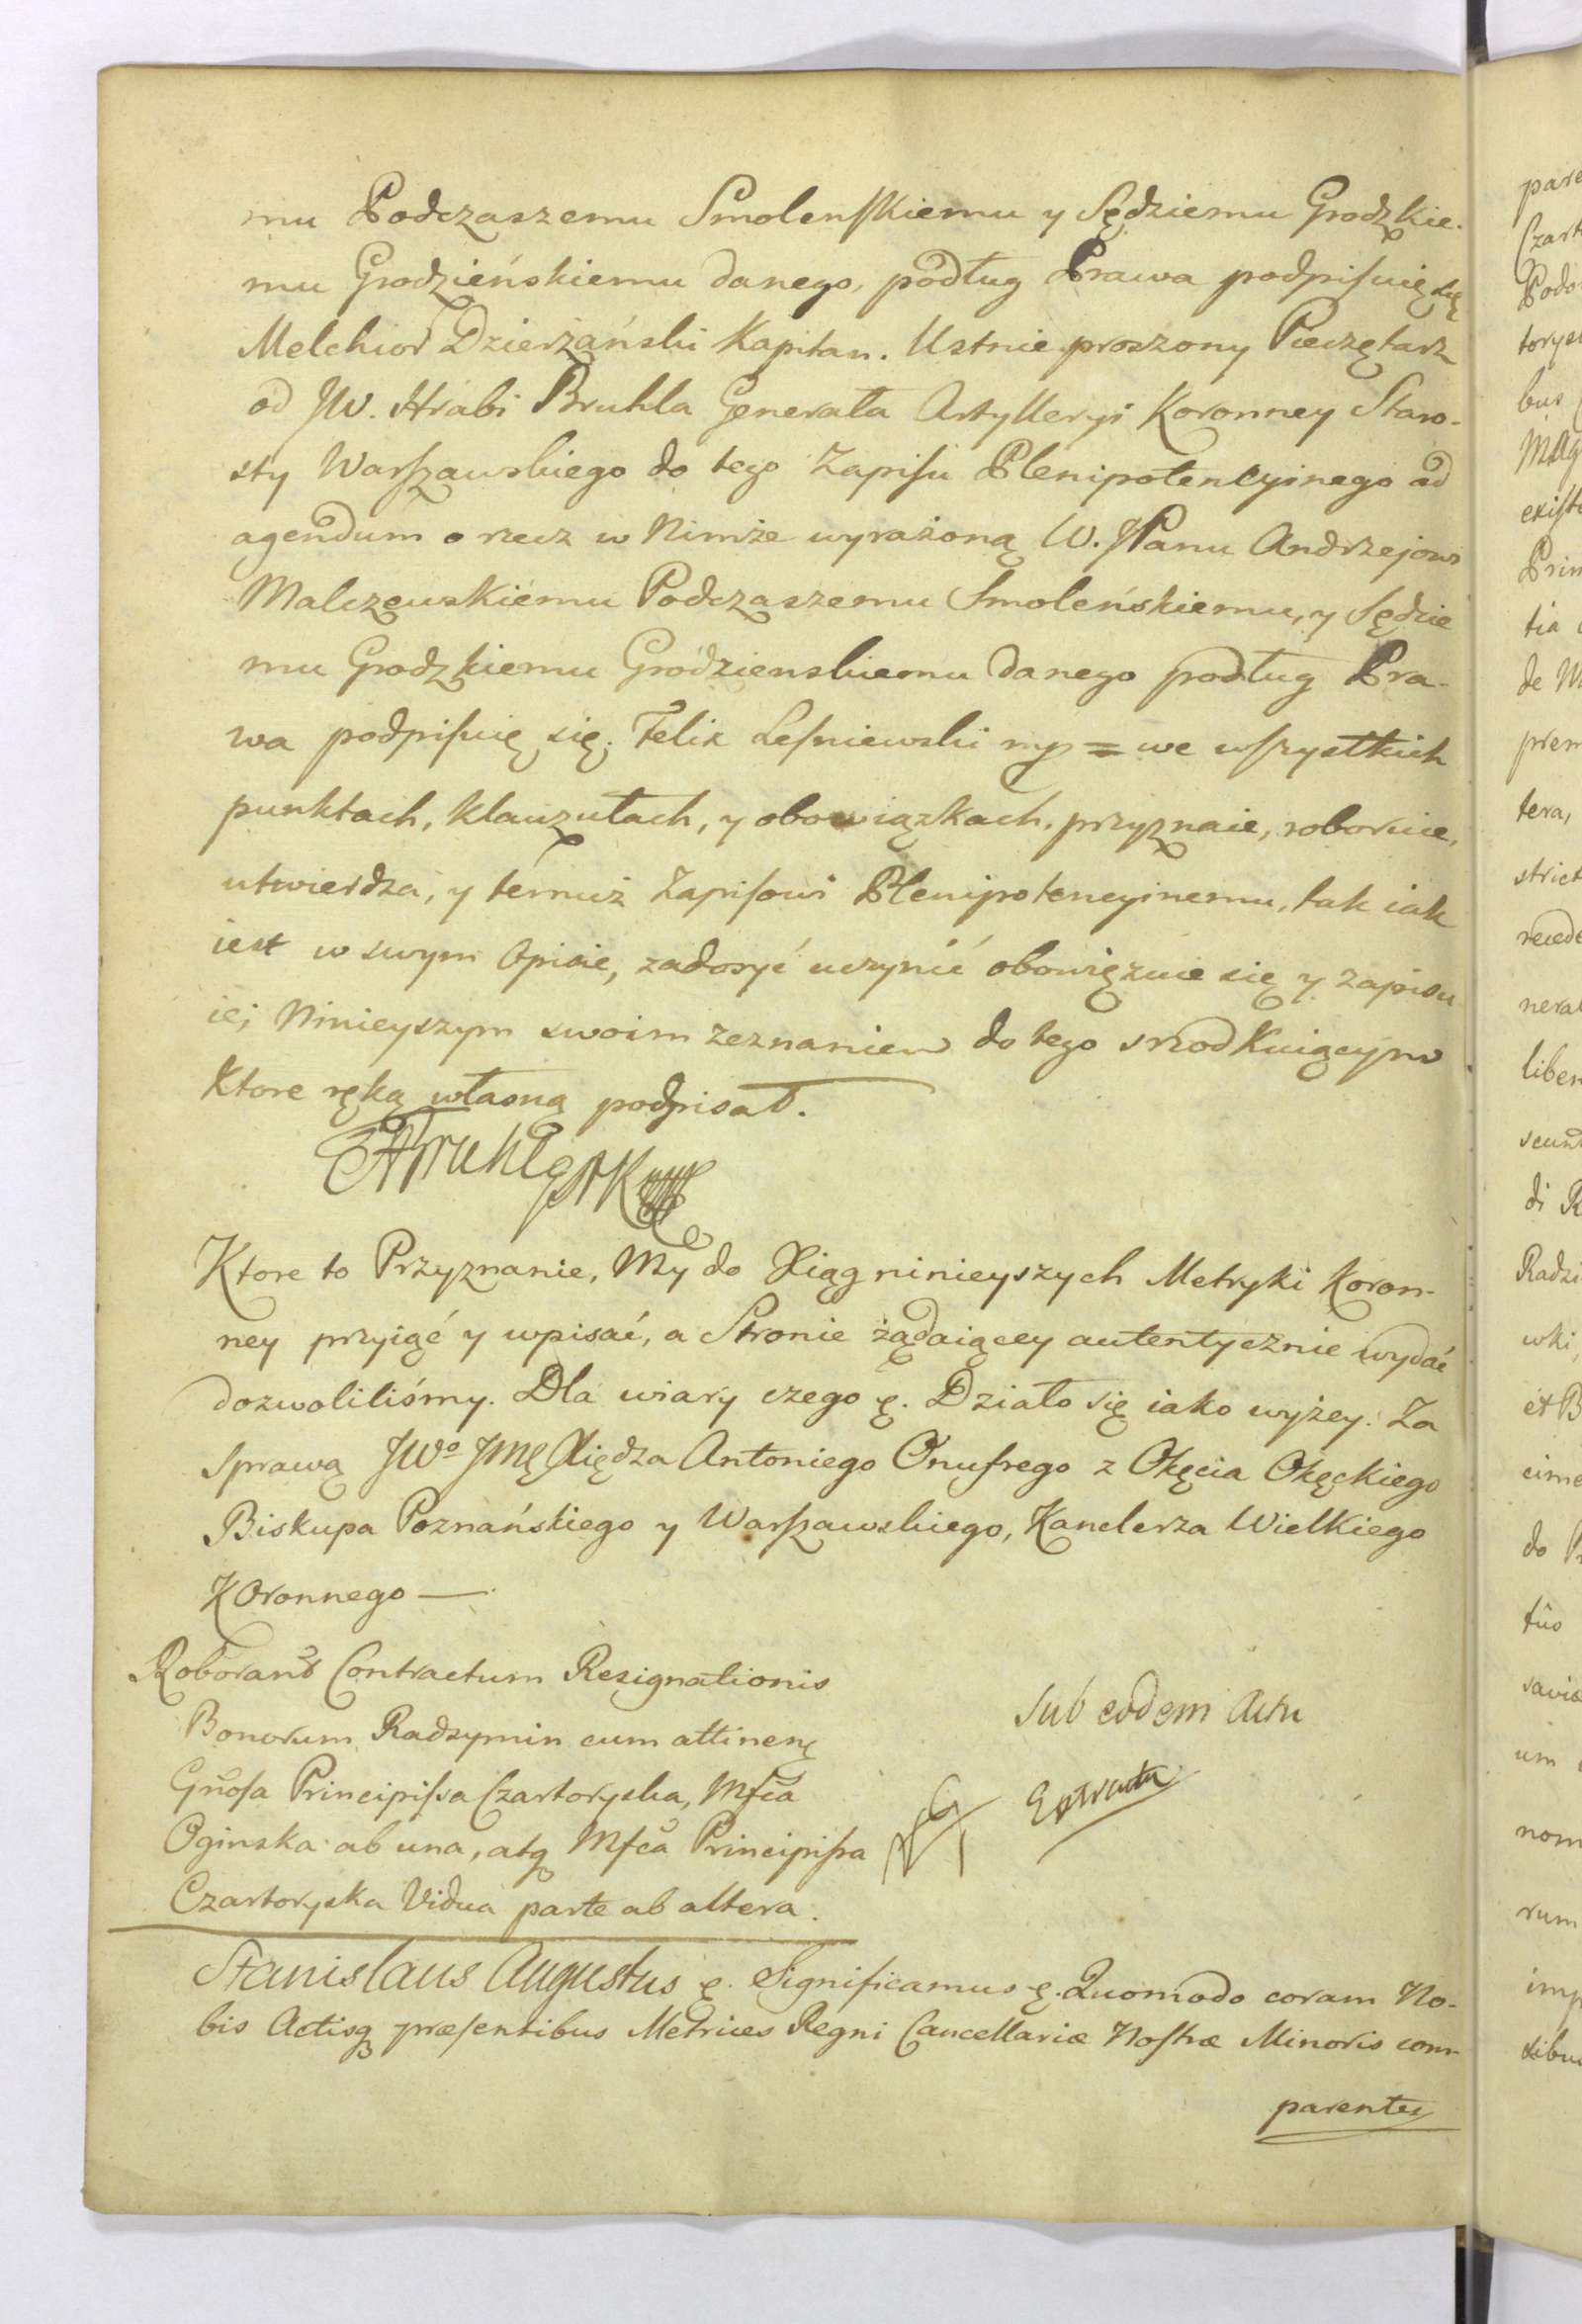 mu Podczaszemu Smolenskiemu y Sędziemu Grodzkie-
mu Grodzieńskiemu danego, podług Prawa podpisuię się
Melchior Dzierżański Kapitan. Ustnie proszony Pieczętarz
od JW. Hrabi Bruhla Generała Artylleryi Koronney Staro-
sty Warszawskiego do tego Zapisu Plenipotencyinego ad
agendum o rzecz w Nimże wyrażoną W. JPanu Andrzejowi
Malczewskiemu Podczaszemu Smoleńskiemu, y Sędzie
mu Grodzkiemu Grodzienskiemu danego podług Pra-
wa podpisuię się. Felix Lesniewski mp = we wszystkich
punktach, klauzułach, y obowiązkach, przyznaie, roboruie,
utwierdza, y temuż Zapisowi Plenipotencyinemu, tak iak
iest w swym Opisie, zadosyć uczynić obowięzuie się y zapisu
ie; Ninieyszym swoim zeznaniem do tego srzodkuiącym
Ktore ręką własną podpisał.
Ktore to Przyznanie, My do Xiąg ninieyszych Metryki Koron-
ney przyiąć y wpisać, a Stronie żądaiącey autentycznie wydać
dozwoliliśmy. Dla wiary czego ę. Działo się iako wyżey. Za
Sprawą JWo JMę Xiędza Antoniego Onufrego z Okęcia Okęckiego
Biskupa Poznańskiego y Warszawskiego, Kanclerza Wielkiego
Koronnego —
Roborand Contractum Resignationis
Bonorum Radzymin cum attinenę
Gnosa Principissa Czartoryska, Mfca
Oginska ab una, atq Mfca Principissa
Czartoryska Vidua parte ab altera.
Sub eodem Actu
Extradu
Stanislaus Augustus ę. Significamus ę. Quomodo coram No-
bis Actisq præsentibus Metrices Regni Cancellariæ Nostræ Minoris com-
parentes